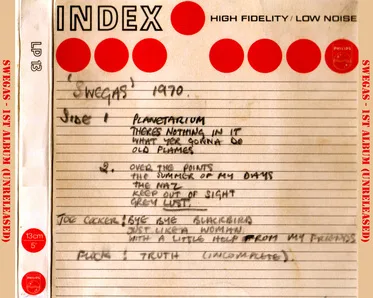 INDEX
HIGH FIDELITY/LOW NOISE
LP 13
SWEGAS - 1ST ALBUM (UNRELEASED)
'SWEGAS' 1970.
SIDE 1 PLANETARIUM
THERES NOTHING IN IT
WHAT YER GONNA DO
OLD FLAMES
2. OVER THE POINTS
THE SUMMER OF MY DAYS
THE NAZ
KEEP OUT OF SIGHT
GREY LUST.
JOE COCKER: BYE BYE BLACKBIRD
JUST LIKE A WOMAN.
WITH A LITTLE HELP FROM MY FRIENDS
: TRUTH (INCOMPLETE).
13cm
5"
SWEGAS - 1ST ALBUM (UNRELEASED)